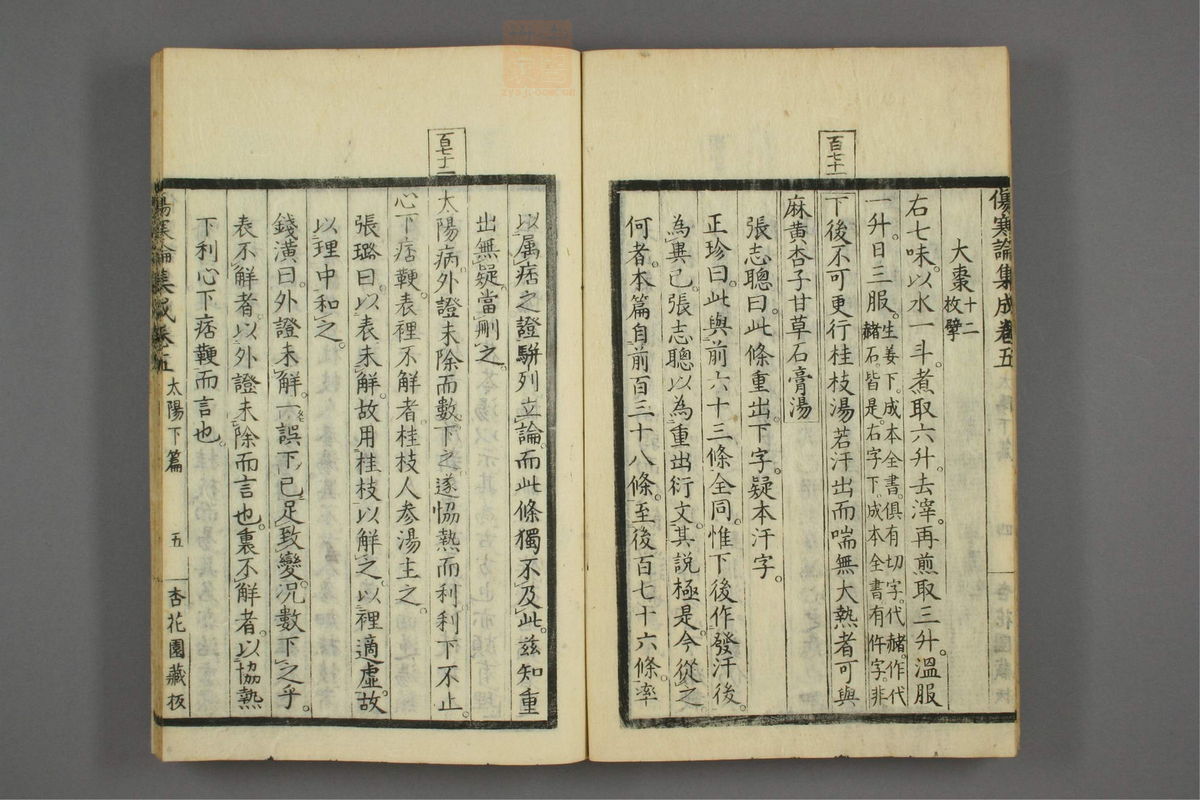 傷寒論集成卷五
大棗十二枚擘
右七味。以水一斗。煮取六升。去滓。再煎取三升。溫服
一升。日三服。生姜下。成本全書。俱有切字。代赭。作代赭石。皆是。右字下。成本全書有件字。非
百七十一
下後不可更行桂枝湯若汗出而喘無大熱者可與
麻黃杏子甘草石膏湯
張志聰曰。此條重出。下字。疑本汗字。
正珍曰。此與前六十三條全同。惟下後作發汗後。
為異已。張志聰以為重出衍文。其說極是。今從之。
何者。本篇自前百三十八條。至後百七十六條。率
以屬痞之證駢列立論。而此條獨不及此。茲知重
出無疑。當刪之。
百七十二
太陽病。外證未除而數下之。遂恊熱而利。利下不止。
心下痞鞕。表裡不解者。桂枝人參湯主之。
張璐曰。以表未解。故用桂枝以解之。以裡適虛。故
以理中和之。
錢潢曰。外證未解。一誤下。已足致變。况數下之乎。
表不解者。以外證未除而言也。裏不解者。以協熱
下利心下痞鞕而言也。
傷寒論集成卷五 太陽下篇 五 杏花園藏板